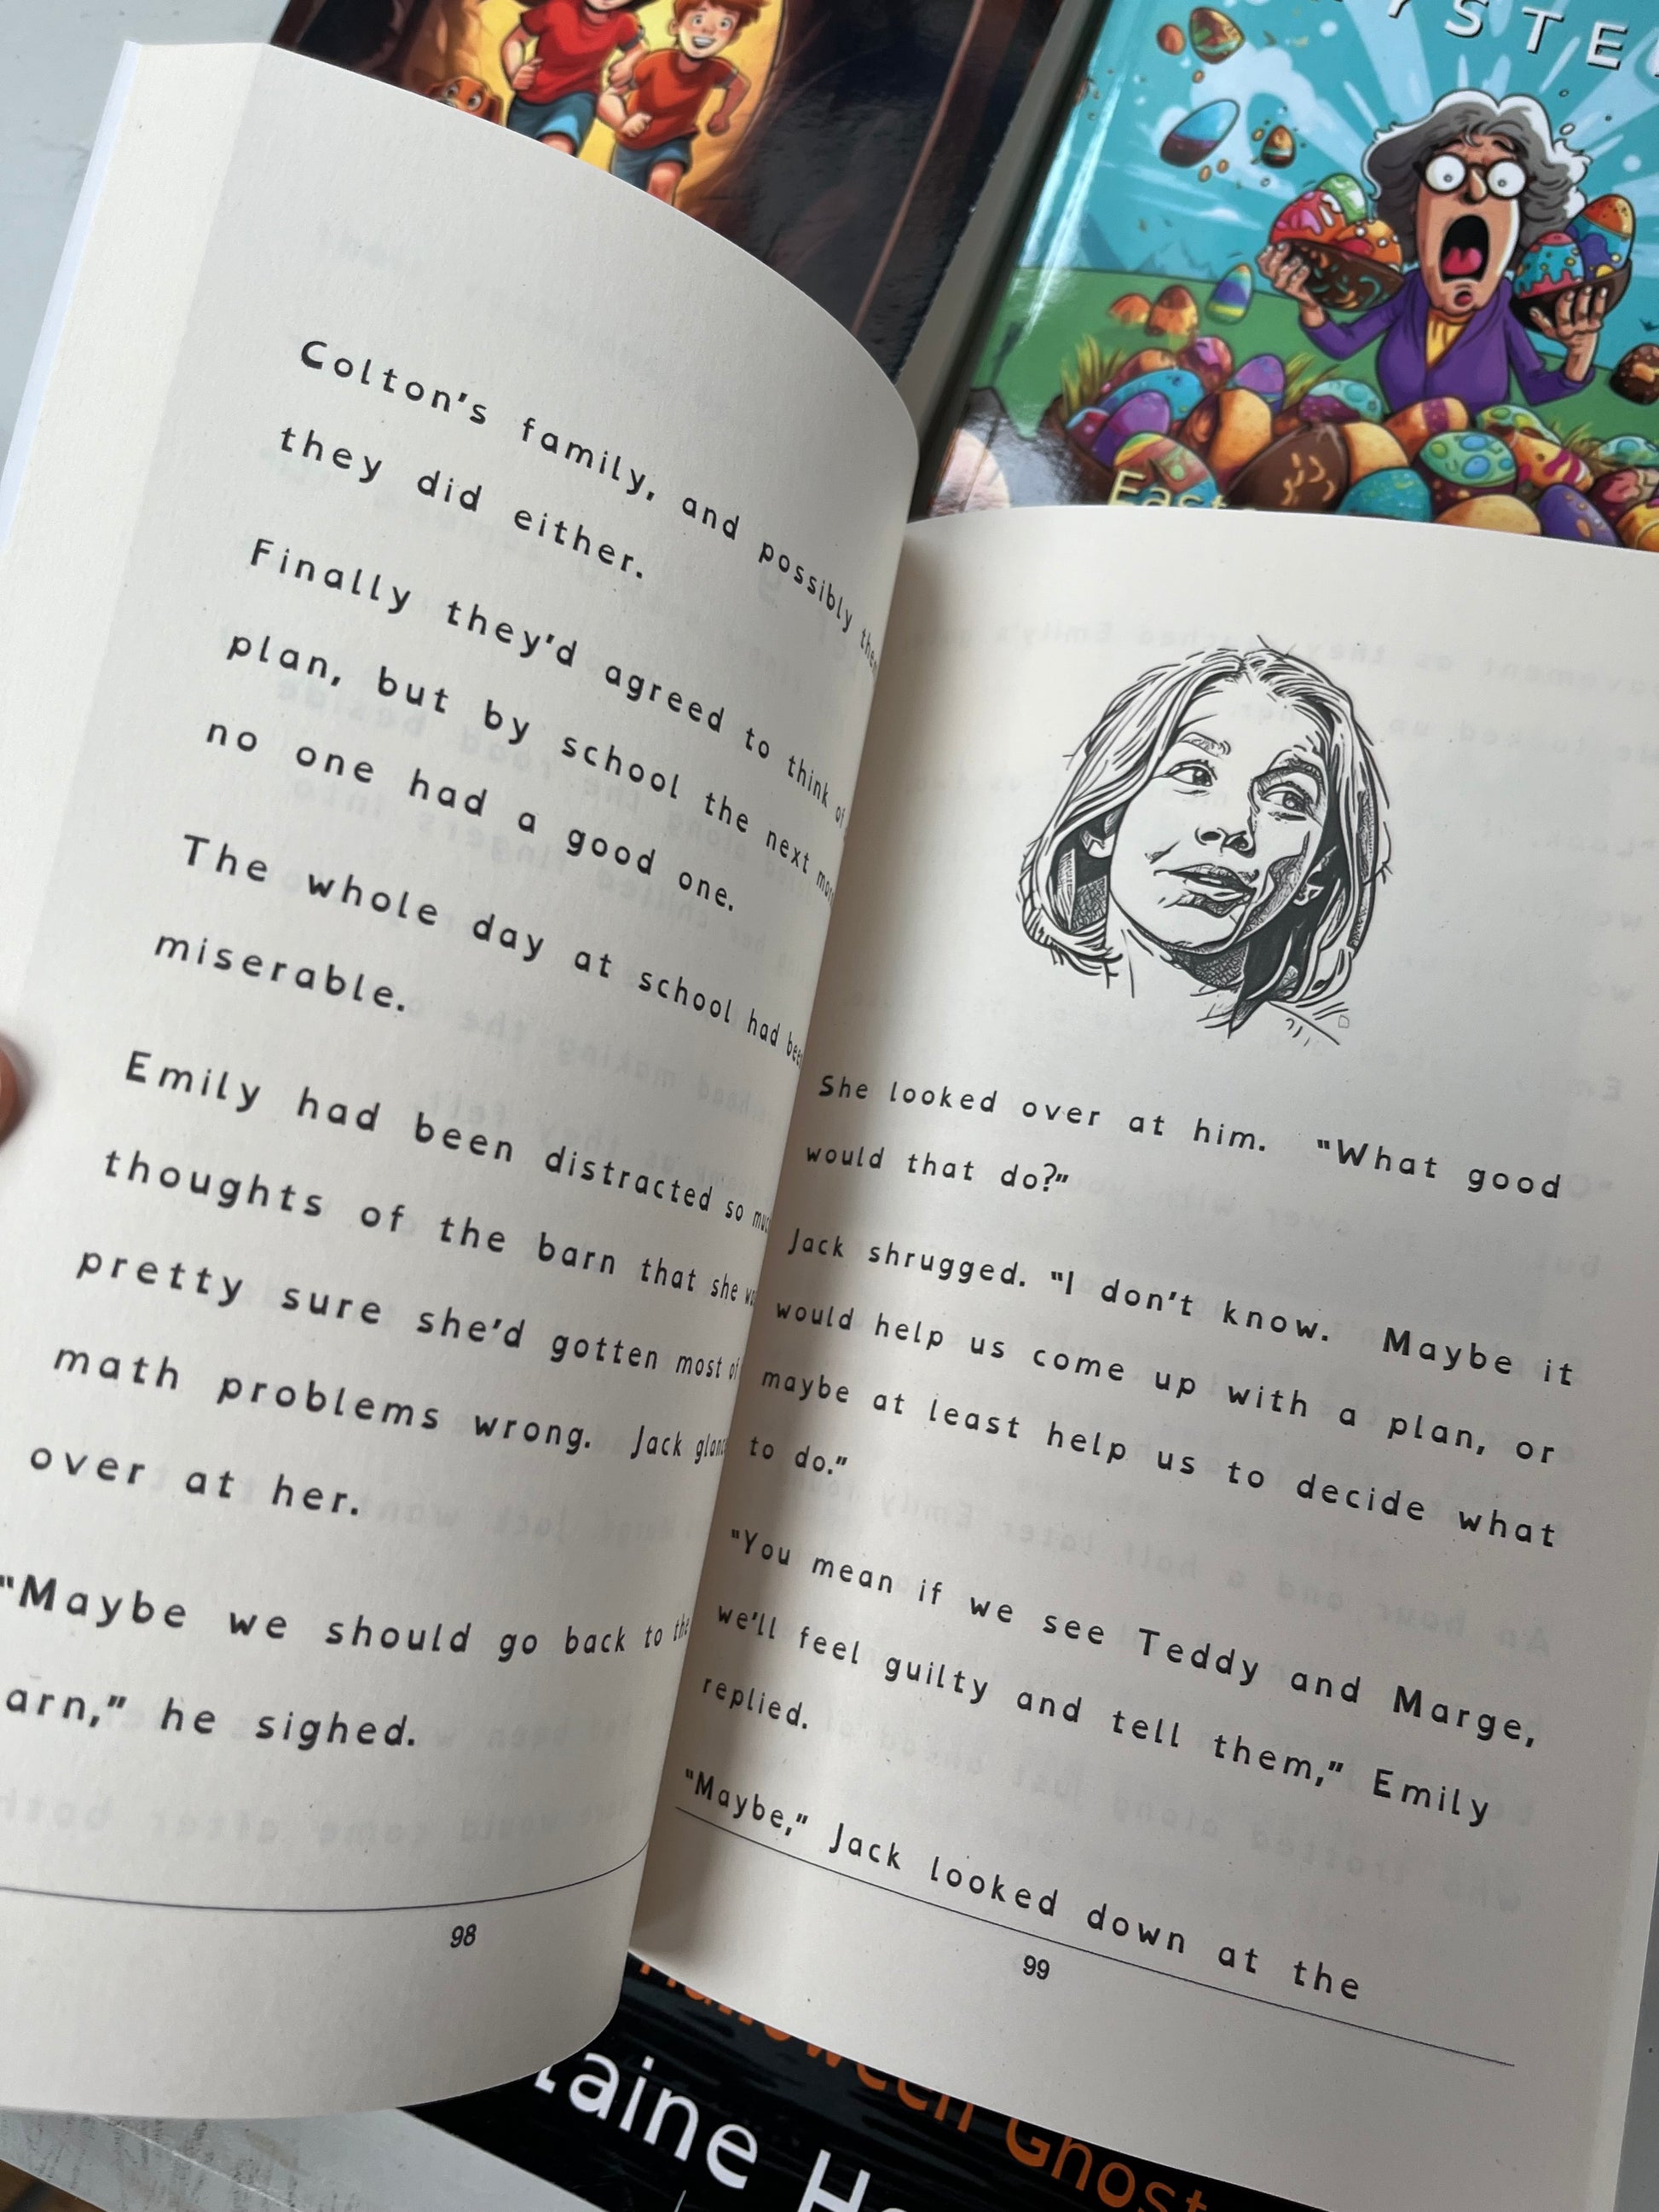 YSTE
East
Colton's family, and possibly
they did either.
Finally they'd agreed to think of
plan, but by school the next
no one had a good one.
The whole day at school had
miserable.
Emily had been distracted so
thoughts of the barn that she
pretty sure she'd gotten most of
math problems wrong. Jack
over at her.
"Maybe we should go back to the
arn," he sighed.
98
She looked over at him. "What good
would that do?"
Jack shrugged. "I don't know. Maybe it
would help us come up with a plan, or
maybe at least help us to decide what
to do."
"You mean if we see Teddy and Marge,
we'll feel guilty and tell them," Emily
replied.
"Maybe," Jack looked down at the
99
Halloween Ghost
taine H